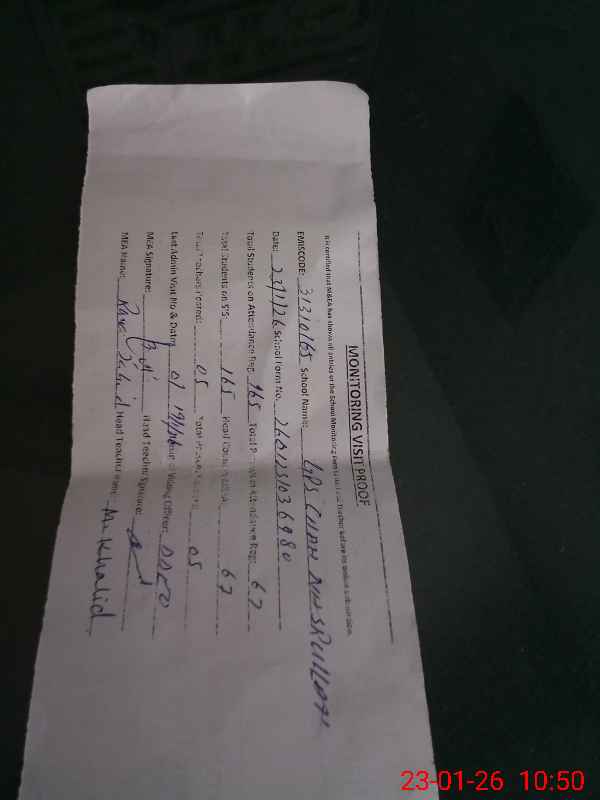 MONITORING VISIT PROOF
It is certified that M&EA has shown all entries of the School Monitoring Form to Head Teacher before its online submission.
EMISCODE: 31310165 School Name: GPS CHAH
Date: 23/1/26 School Form No. 2601231036980
Total Students on Attendance Reg: 165 Total Present on Attendance Reg: 67
Total Students on SIS: 165 Head Count 67
Total Teachers Posted: 05 Total Present Teachers: 05
Last Admin Visit No & Date: 01 Visiting Officer:
MEA Signature: Head Teacher Signature:
MEA Name: Rana Head Teacher Name: Mr Khalid
23-01-26 10:50